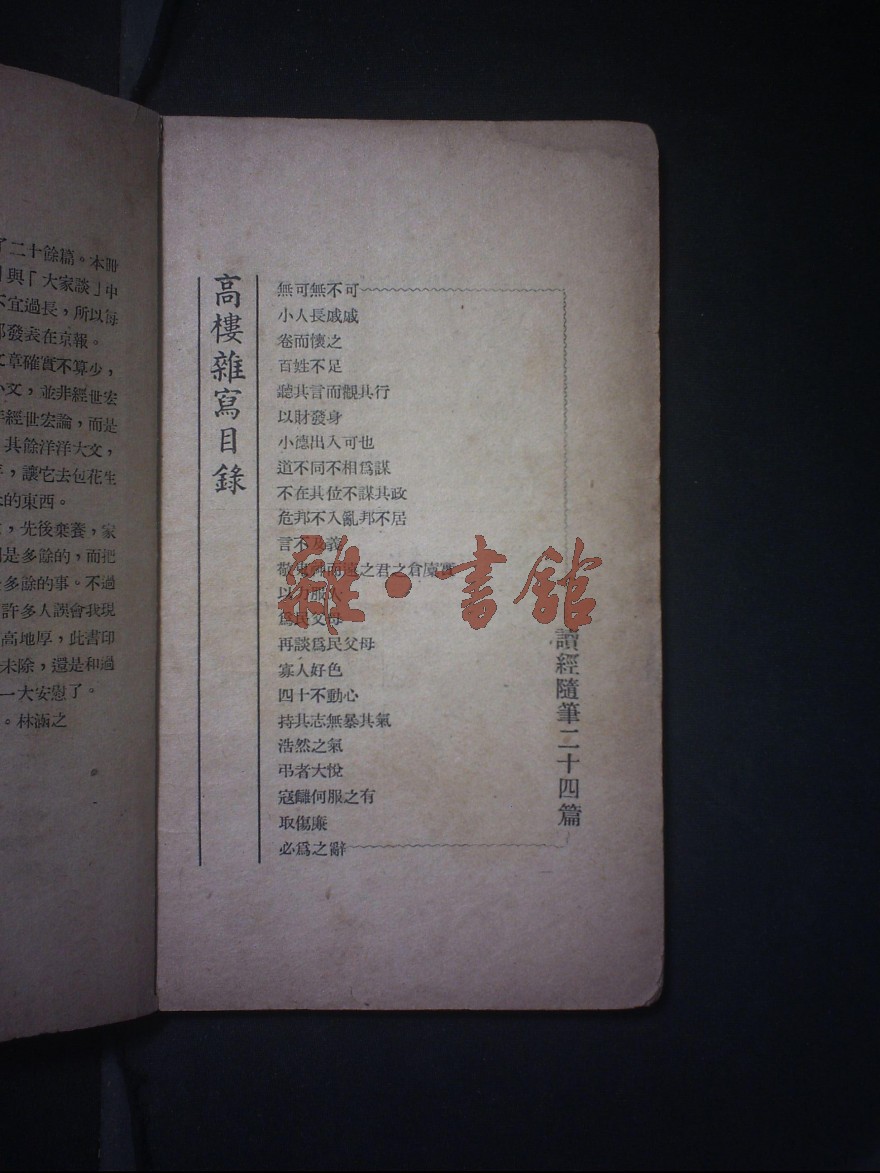 了二十餘篇。本冊
與「大家談」中
不宜過長,所以每
都發表在京報。
文章確實不算少,
小文,並非經世宏
非經世宏論,而是
其餘洋洋大文,
,讓它去包花生
的東西。
,先後棄養,家
是多餘的,而把
多餘的事。不過
許多人誤會我現
高地厚,此書印
未除,還是和過
一大安慰了。
。林涵之
高樓雜寫目錄
無可無不可
小人長戚戚
卷而懷之
百姓不足
聽其言而觀其行
以財發身
小德出入可也
道不同不相爲謀
不在其位不謀其政
危邦不入亂邦不居
言不及義
敬鬼神而遠之君之倉廩實
以力服人
爲民父母
再談爲民父母
寡人好色
四十不動心
持其志無暴其氣
浩然之氣
弔者大悅
寇讎何服之有
取傷廉
必爲之辭
讀經隨筆二十四篇
雜·書館